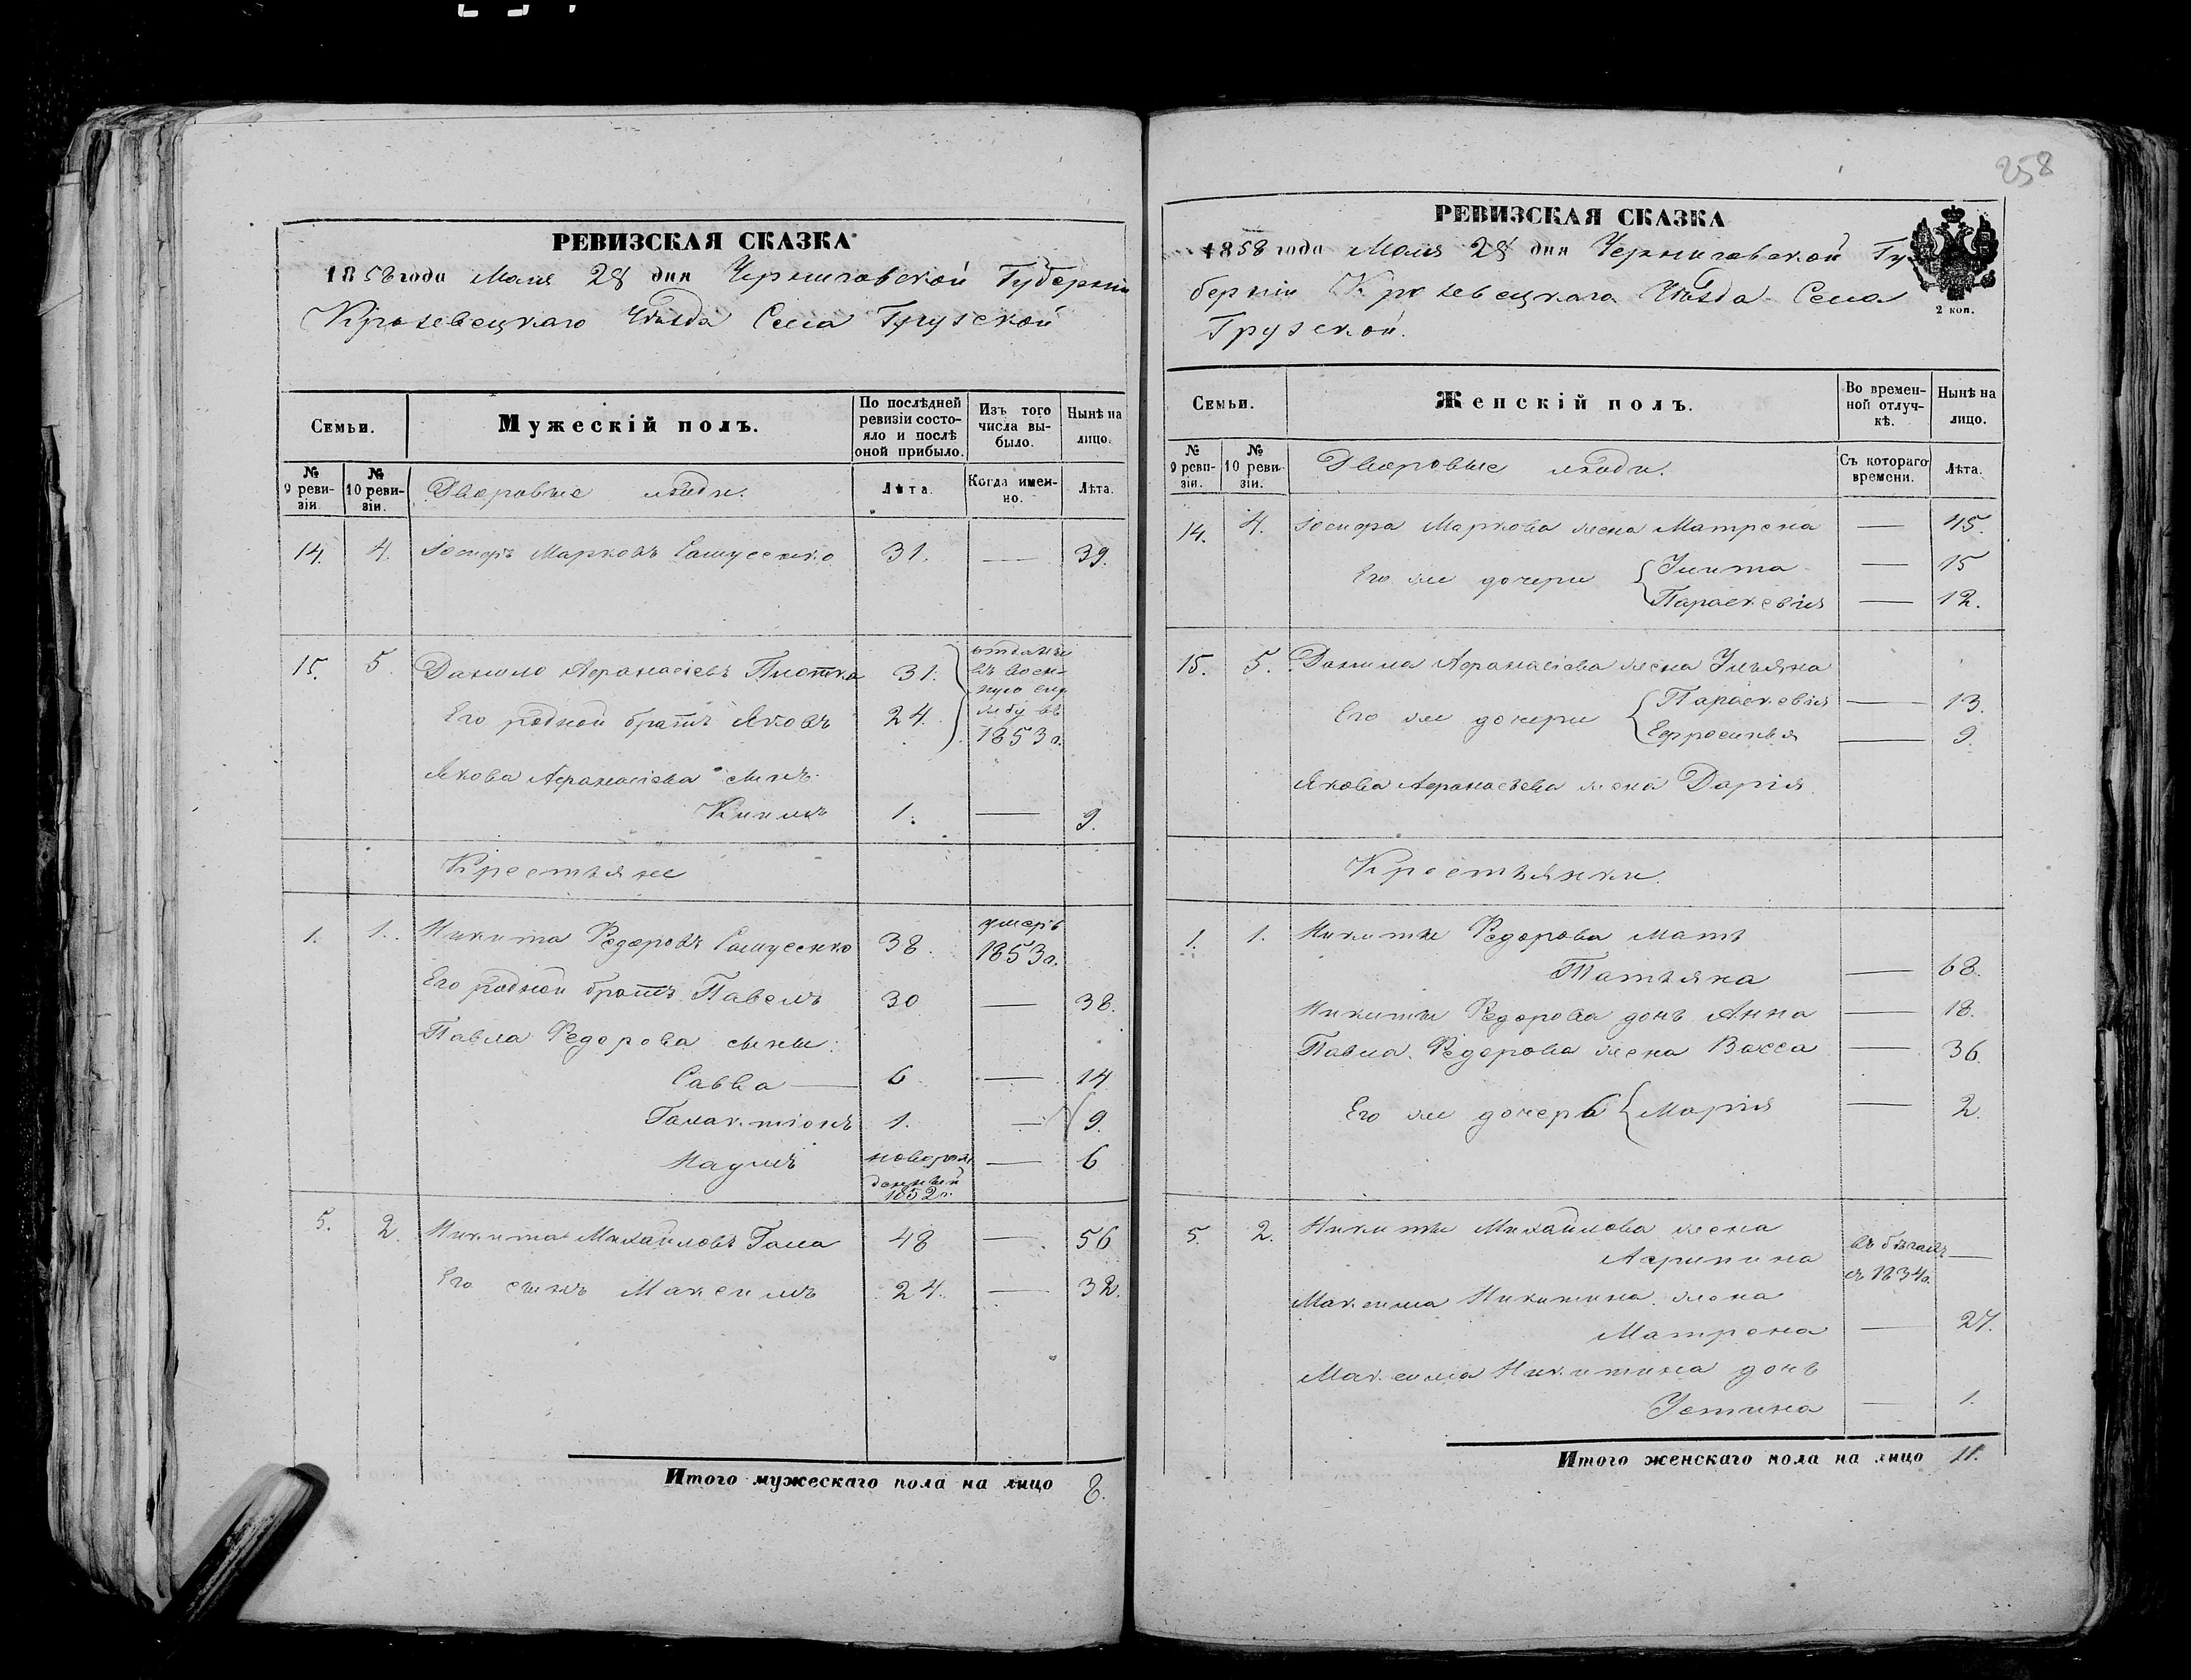 258
РЕВИЗСКАЯ СКАЗКА
1858 года Мая 28 дня Черниговской Губерніи
Кролевецкаго Уѣзда Села Грузской
Семьи.
Мужескій полъ.
По послѣдней ревизіи состояло и послѣ оной прибыло.
Изъ того числа выбыло.
Нынѣ на лицо.
№ 9 ревизіи.
№ 10 ревизіи.
Дворовые люди.
Лѣта.
Когда именно.
Лѣта.
14. 4. Іосифъ Марковъ 31. — 39.
15. 5 Данило Афанасіевъ 31.
Его родной братъ Яковъ 24.
отданы въ военную службу въ 1853 г.
Якова Афанасіева сынъ
1. — 9.
Крестьяне
1. 1. Никита Федоровъ 38. умеръ 1853 г.
Его родной братъ Павелъ 30 — 38.
Павла Федорова сыны:
Савва — 6 — 14
Галактіонъ 1. — 9.
Наумъ новорожденный 1852 г. — 6
5. 2. Никита Михайловъ Гала 48 — 56
Его сынъ Максимъ 24. — 32.
Итого мужескаго пола на лицо 8.
РЕВИЗСКАЯ СКАЗКА
1858 года Мая 28 дня Черниговской Гу
берніи Кролевецкаго Уѣзда Села
Грузской.
2 коп.
Семьи.
Женскій полъ.
Во временной отлучкѣ.
Нынѣ на лицо.
№ 9 ревизіи.
№ 10 ревизіи.
Дворовые люди.
Съ котораго времени.
Лѣта.
14. 4. Іосифа Маркова жена Матрена — 45.
Его же дочери { Улита — 15
Параскевія — 12.
15. 5. Данила Афанасіева жена Ульяна
Его же дочери { Параскевія — 13.
Ефросинья — 9.
Якова Афанасьева жена Дарія
Крестьянки.
1. 1. Никиты Федорова мать
Татьяна — 68.
Никиты Федорова дочь Анна — 18.
Павла Федорова жена Васса — 36
Его же дочерь { Марія — 2.
5. 2. Никиты Михайлова жена
Агрипина въ бѣгахъ съ 1834 г. —
Максима Никитина жена
Матрена — 27.
Максима Никитина дочь
Устина — 1.
Итого женскаго пола на лицо 11.